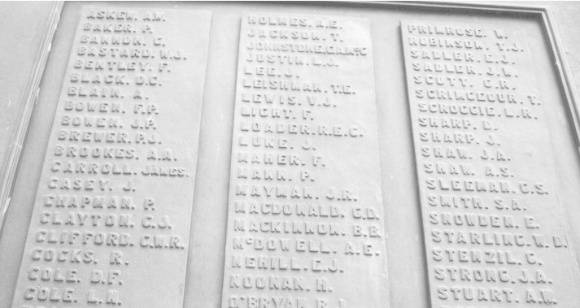 ASKEW. A.M.
BAKER. P.
BANNON. C.
BASTARD. W.J.
BENTLEY. F.
BLACK. D.C.
BLAIN. A.
BOWEN. F.P.
BOWEN. J.P.
BREWER. P.J.
BROOKES. A.M.
CARROLL. JAMES.
CASEY. J.
CHAPMAN. P.
CLAYTON. C.J.
CLIFFORD. C.W.R.
COCKS. R.
COLE. D.F.
COLE. L.A.
HOLMES. A.E.
JACKSON. T.
JOHNSTONE.
JUSTIN. L.J.
LEE. J.
LEISHMAN. T.E.
LEWIS. V.J.
LIGHT. F.
LOADER. R.E.C.
LUKE. J.
MAHER. F.
MANN. P.
MAYMAN. J.R.
MACDONALD. C.D.
MACKINNON. B.B.
McDOWELL. A.E.
NEHILL. E.J.
NOONAN. H.
O'BRYAN. R.J.
PRIMROSE. W.
ROBINSON. T.J.
SADLER. E.J.
SADLER. J.W.
SCOTT. C.R.
SCRIMGEOUR. T.
SCROGGIE. L.R.
SHARP. D.
SHARP. J.
SHAW. J.A.
SHAW. A.S.
SLEEMAN. C.S.
SMITH. S.A.
SNOWDEN. E.
STARLING. W.D.
STENZIL. C.
STRONG. J.A.
STUART. A.W.